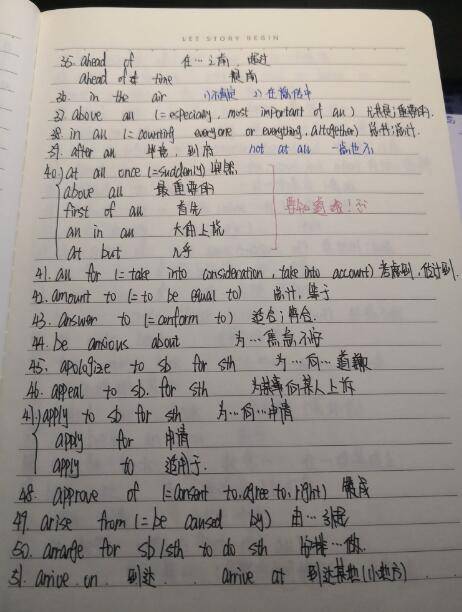 LET STORY BEGIN
35. ahead of 在…之前,超过
ahead of time 提前
36. in the air 1)不确定 2)在流传中
37. above all (=especially, most important of all) 尤其是;重要的.
38. in all (=counting everyone or everything, altogether) 总共;总计.
39. after all 毕竟,到底 not at all 一点也不
40.) at all once (=suddenly) 突然;
above all 最重要的
first of all 首先
all in all 大体上说
at but 几乎
41. all for (= take into consideration, take into account) 考虑到,估计到.
42. amount to (= to be equal to) 总计,等于
43. answer to (= conform to) 适合;符合.
44. be anxious about 为…焦急不安
45. apologize to sb for sth 为…向…道歉
46. appeal to sb. for sth 为某事向某人上诉
47.) apply to sb for sth 为…向…申请
apply for 申请
apply to 适用于.
48. approve of (=consent to, agree to, right) 赞成
49. arise from (= be caused by) 由…引起
50. arrange for sb/sth to do sth 安排…做.
51. arrive on 到达 arrive at 到达某地(小地方)